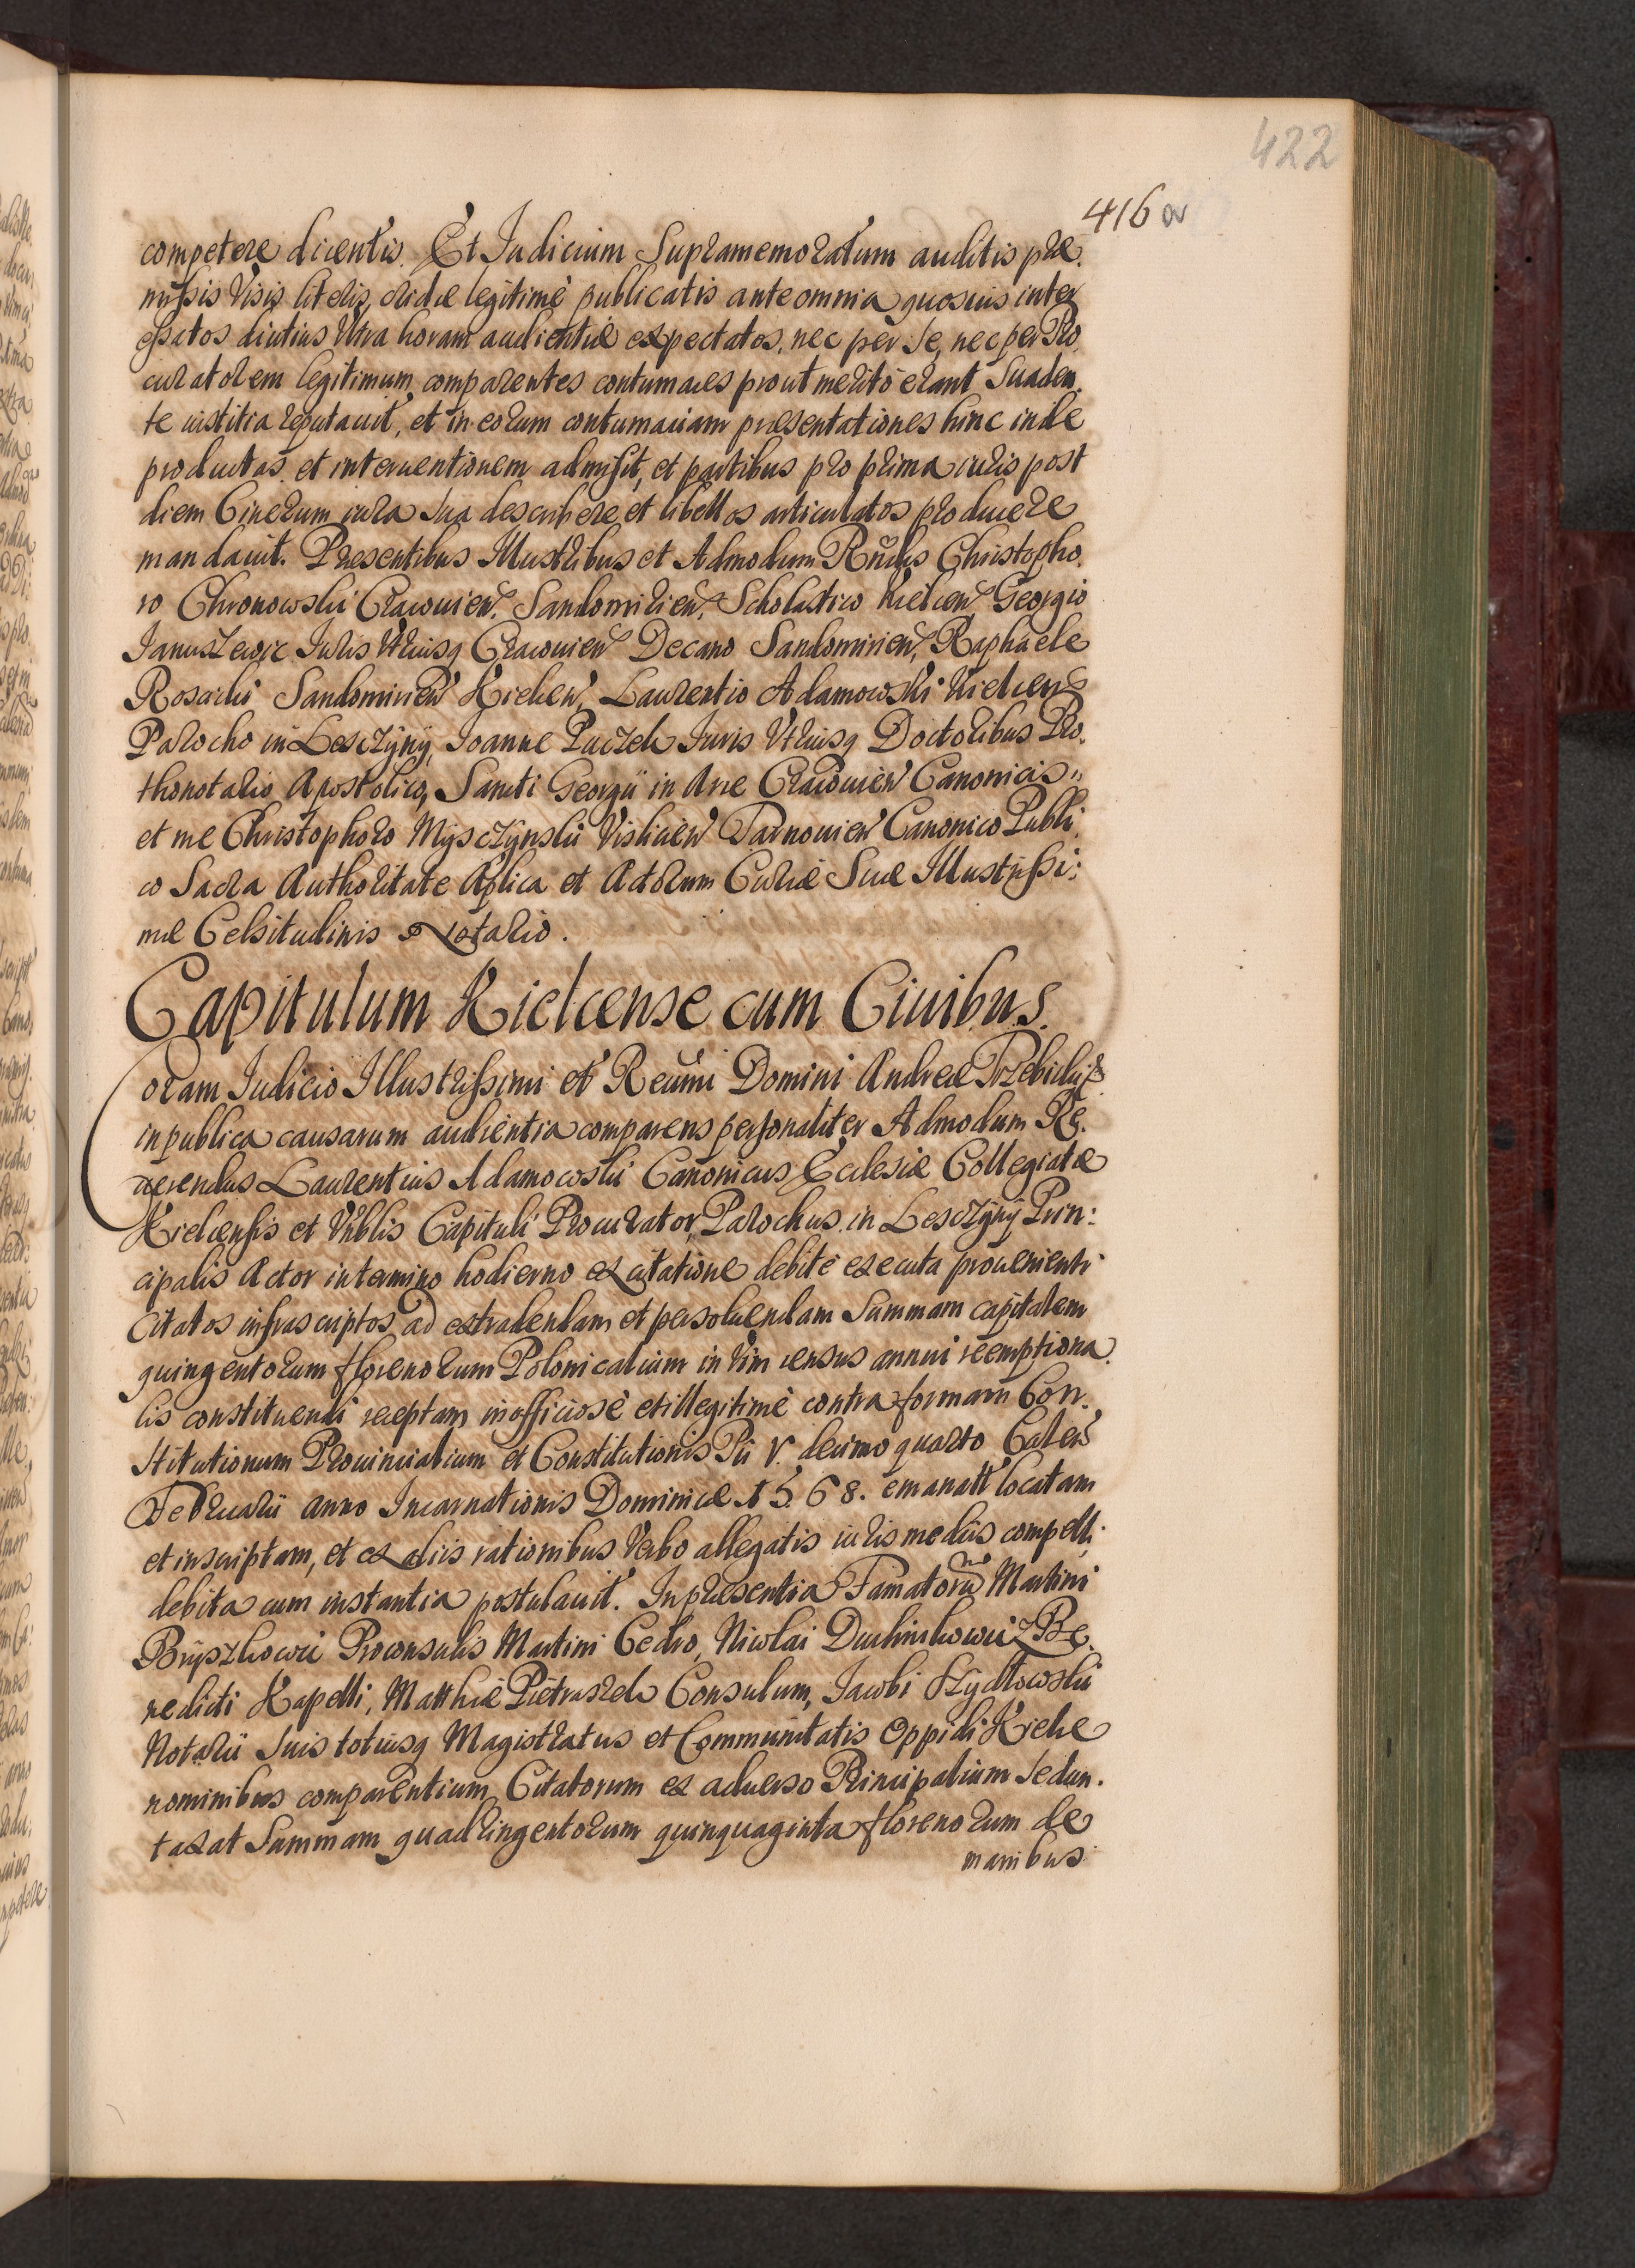 422
416
competere dicentis. Et Iudicium Supramemoratum auditis præ.
missis Visis literis, cridæ legitimè publicatis ante omnia quosuis inter
essatos diutius Vltra horam audientiæ expectatos, nec per Se, nec per Pro.
curatorem legitimum comparentes contumaces prout meritò erant Suaden.
te iustitia reputauit, et in eorum contumaciam præsentationes hinc inde
productas et interuentionem admisit, et partibus pro prima iuris post
diem Cinerum iura Sua describere, et libellos articulatos producere
mandauit. Præsentibus Illustribus et Admodum Rñdis Christopho.
ro Chronowski Cracouien. Sandomirien. Scholastico Kielcen. Georgio
Januszewic Iuris Vtriusq Cracouien Decano Sandomirien, Raphaele
Rosacki Sandomirien Kielcen, Laurentio Adamowski Kielcen
Parocho in Lesczÿnÿ, Ioanne Puczek Iuris Vtriusq Doctoribus Pro.
thonotario Apostolico, Sancti Georgii in Arce Cracouien Canonicis
et me Christophoro Mysczÿnski Vislicien Tarnouien Canonico Publi.
co Sacra Authoritate Aplica et Actorum Curiæ Suæ Illustrissi:
mæ Celsitudinis Notario.
Capitulum Kielcense cum Ciuibus.
Coram Iudicio Illustrissimi et Reumi Domini Andreæ Trzebicki &
in publica causarum audientia comparens personaliter Admodum Re.
uerendus Laurentius Adamowski Canonicus Ecclesiæ Collegiatæ
Kielcensis et Vnblis Capituli Procurator, Parochus in Lesczÿnÿ Prin:
cipalis Actor in termino hodierno ex citatione debitè executa proueniente
Citatos infrascriptos ad extradendam et persoluendam Summam capitalem
quingentorum florenorum Polonicalium in Vim census annui reemptiona.
lis constituendi receptam inofficiosè et illegitimè contra formam Con.
stitutionum Prouincialium et Constitutionis Pii V. decimo quarto Calen
Februarii anno Incarnationis Dominicæ 1568. emanatt locatam
et inscriptam, et ex aliis rationibus Verbo allegatis iuris mediis compelli
debita cum instantia postulauit. In præsentia Famatorum Martini
Brÿszkowic Proconsulis Martini Cedro, Nicolai Duchnikowicz Be.
nedicti Kapelli, Matthiæ Pietraszek Consulum, Iacobi Szydlowski
Notarii Suis totiusq Magistratus et Communitatis Oppidi Kielce
nominibus comparentium Citatorum ex aduerso Principalium Sedun.
taxat Summam quadringentorum quinquaginta florenorum de
manibus